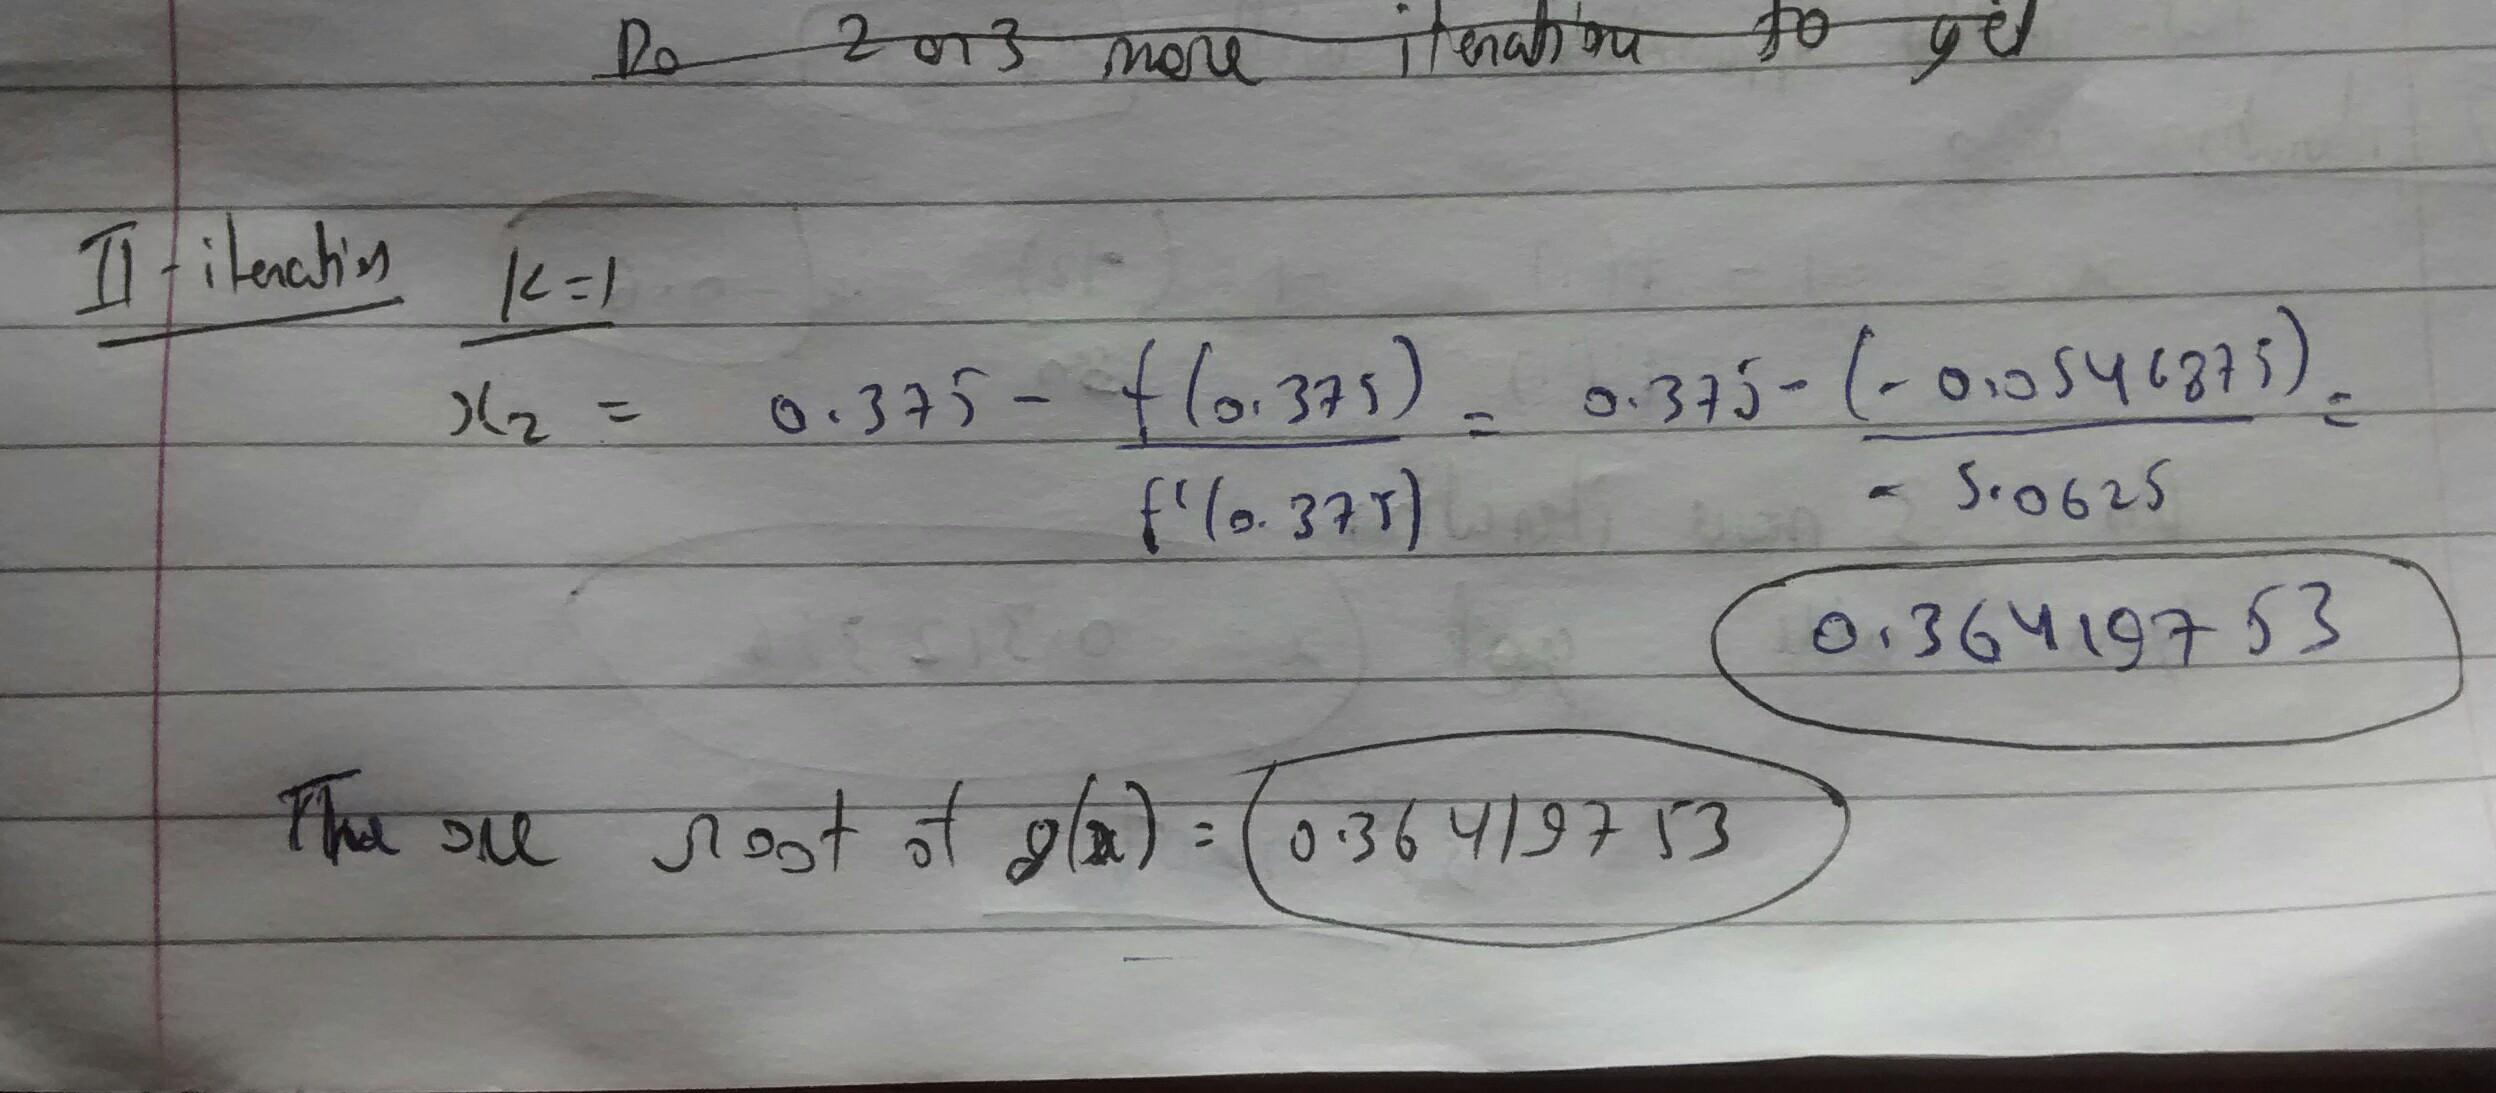 Do 2 or 3 more iteration to get
II - iteration K=1
x₂ = 0.375 - f(0.375) = 0.375 - (-0.0546875) =
f'(0.375) - 5.0625
0.364197 53
The are root of g(x) = 0.36419753